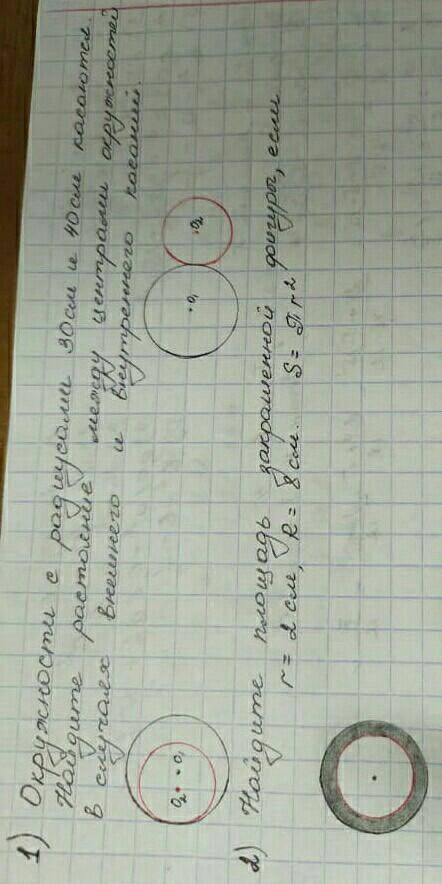 1) Окружности с радиусами 30см и 40см касаются.
Найдите растояние между центрами окружностей
в случаях внешнего и внутреннего касаний.
O₂ O₁
O₁ O₂
2) Найдите площадь закрашенной фигуры, если
r = 2 см, R = 8 см. S = π r 2